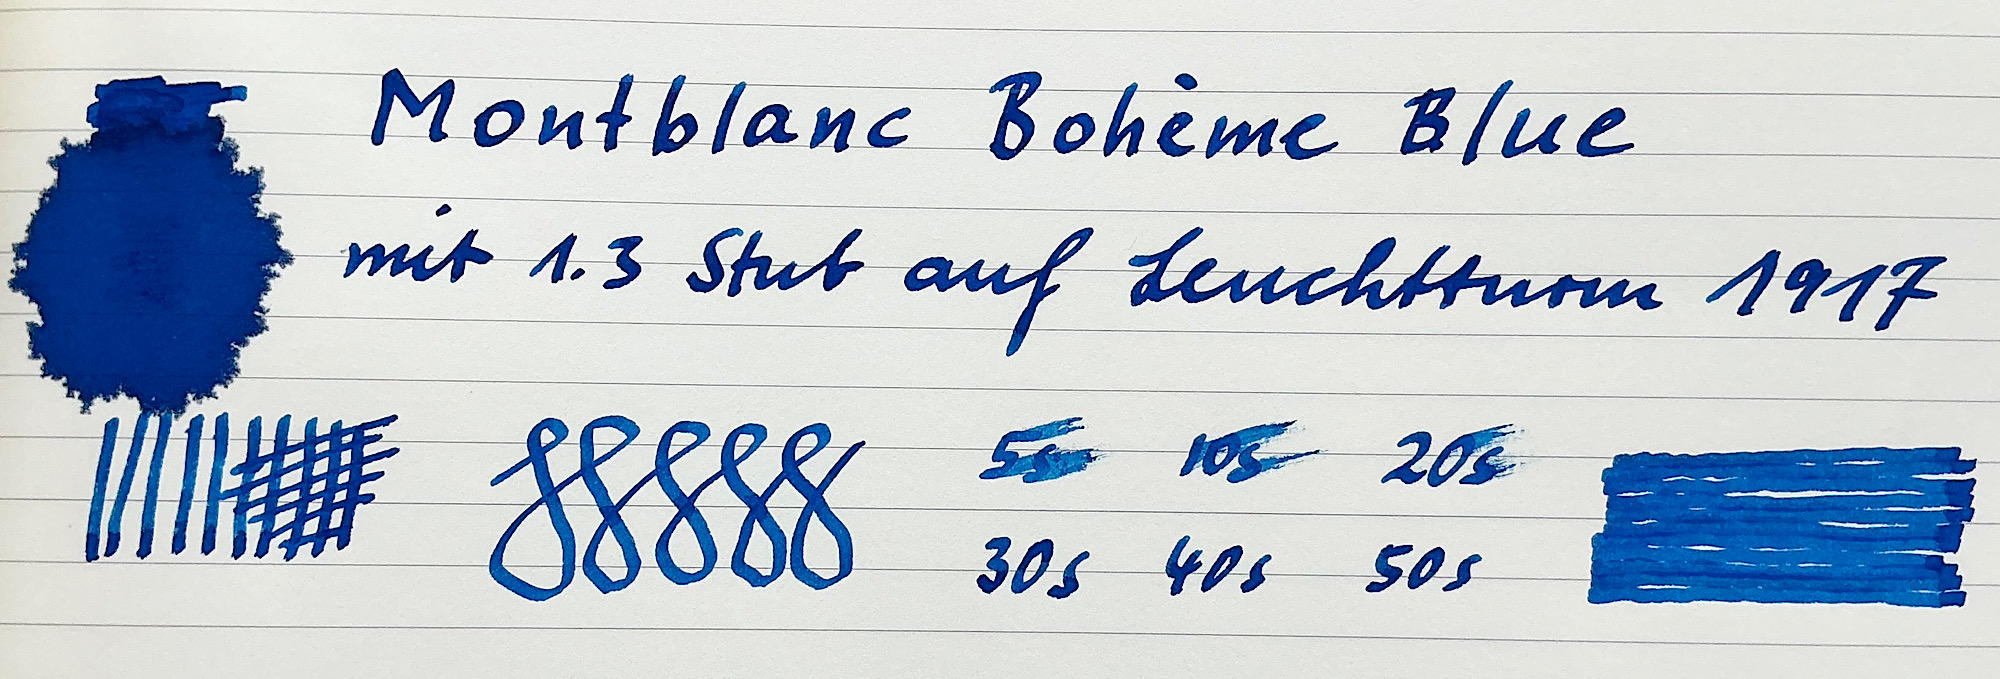 Montblanc Bohème Blue
mit 1.3 Stub auf Leuchtturm 1917
5s 10s 20s
30s 40s 50s